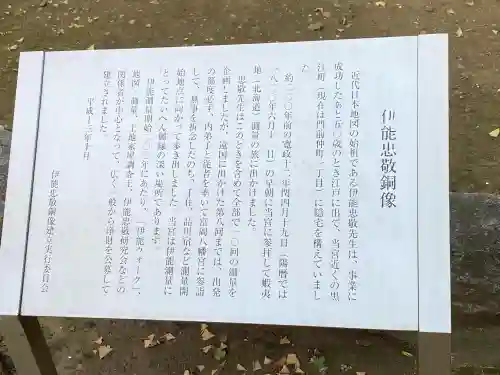 伊能忠敬銅像
近代日本地図の始祖である伊能忠敬先生は、事業に
成功したあと五〇歳のとき江戸に出て、当宮近くの黒
江町（現在は門前仲町一丁目）に隠宅を構えていまし
た。
約二〇〇年前の寛政十二年閏四月十九日（陽暦では
一八〇〇年六月十一日）の早朝に当宮に参拝して蝦夷
地（北海道）測量の旅に出かけました。
忠敬先生はこのときを含めて全部で一〇回の測量を
企画しましたが、遠国に出かけた第八回までは、出発
の都度必ず、内弟子と従者を率いて富岡八幡宮に参詣
して、無事を祈念したのち、千住、品川宿など測量開
始地点に向かって歩き出しました。当宮は伊能測量に
とってたいへん御縁の深い場所であります。
伊能測量開始二〇〇年にあたり、「伊能ウオーク」、
地図、測量、土地家屋調査士、伊能忠敬研究会などの
関係者が中心となって、広く一般から浄財を公募して
建立されました。
平成十三年十月
伊能忠敬銅像建立実行委員会